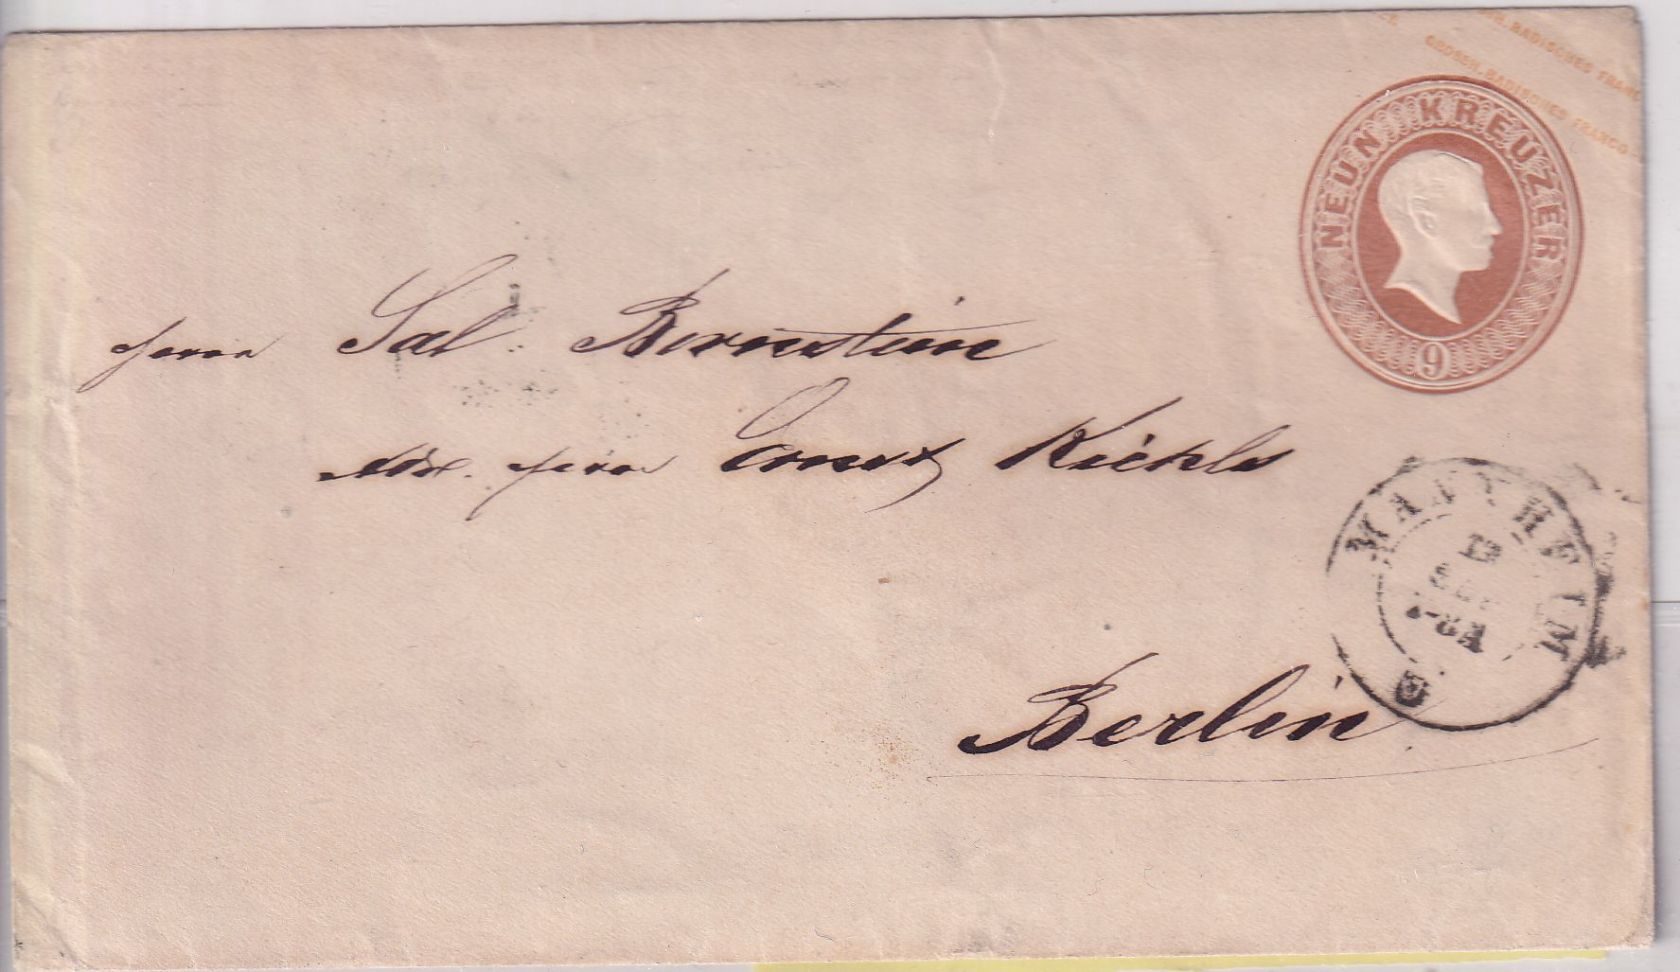 GROSSH. BADISCHES FRANCO
GROSSH. BADISCHES FRANCO
NEUN KREUZER
9
Herrn Sal. Bernstein
Adr. Herrn Ernst
MANNHEIM
Berlin